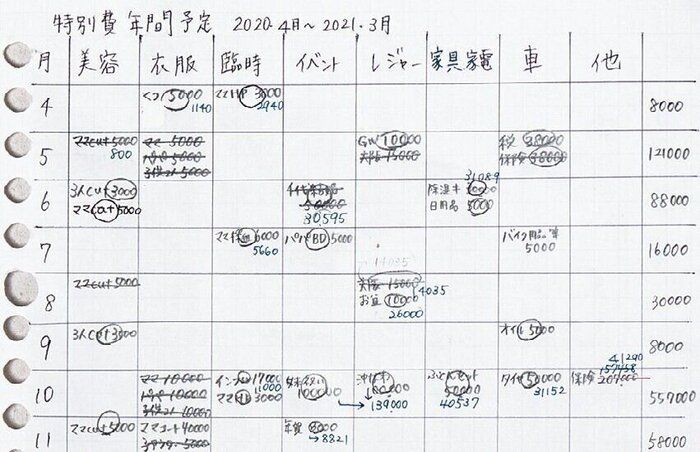 特別費 年間予定 2020.4月～2021.3月
月 美容 衣服 臨時 イベント レジャー 家具家電 車 他
4 くつ 5000 1140 ママHP 3000 2940 8000
5 ママcut 5000 800 ママ 5000 パパ 5000 子供コト 5000 GW 10000 実家 15000 税 38000 保険 38000 121000
6 3人cut 3000 ママcut 5000 50000 30595 除湿キ 10000 31089 日用品 5000 88000
7 ママ保血 6000 5660 パパBD 5000 バイク用品等 5000 16000
8 ママcut 5000 14035 実家 15000 4035 お盆 10000 26000 30000
9 3人cut 3000 オイル 5000 8000
10 ママ 10000 パパ 10000 子供コト 10000 インフル 17000 11000 ママHP 3000 100000 100000 139000 ふとんセット 50000 40537 タイヤ 50000 31152 保険 209000 157458 41290 557000
11 ママcut 5000 ママコート 40000 5000 年賀 8000 →8821 58000